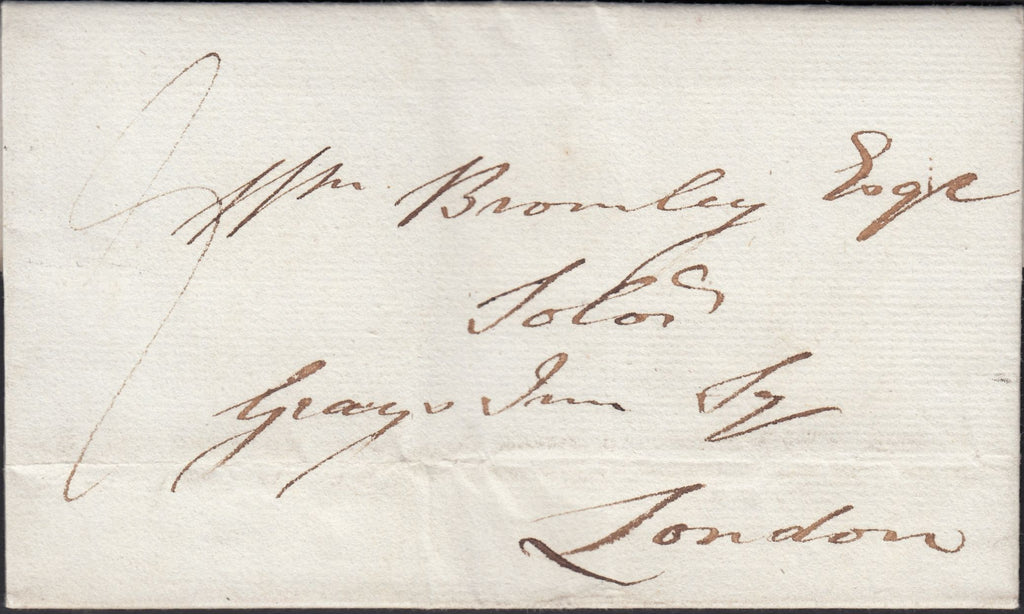 Wm Bromley Esqre
Solor
Grays Inn Sq
London